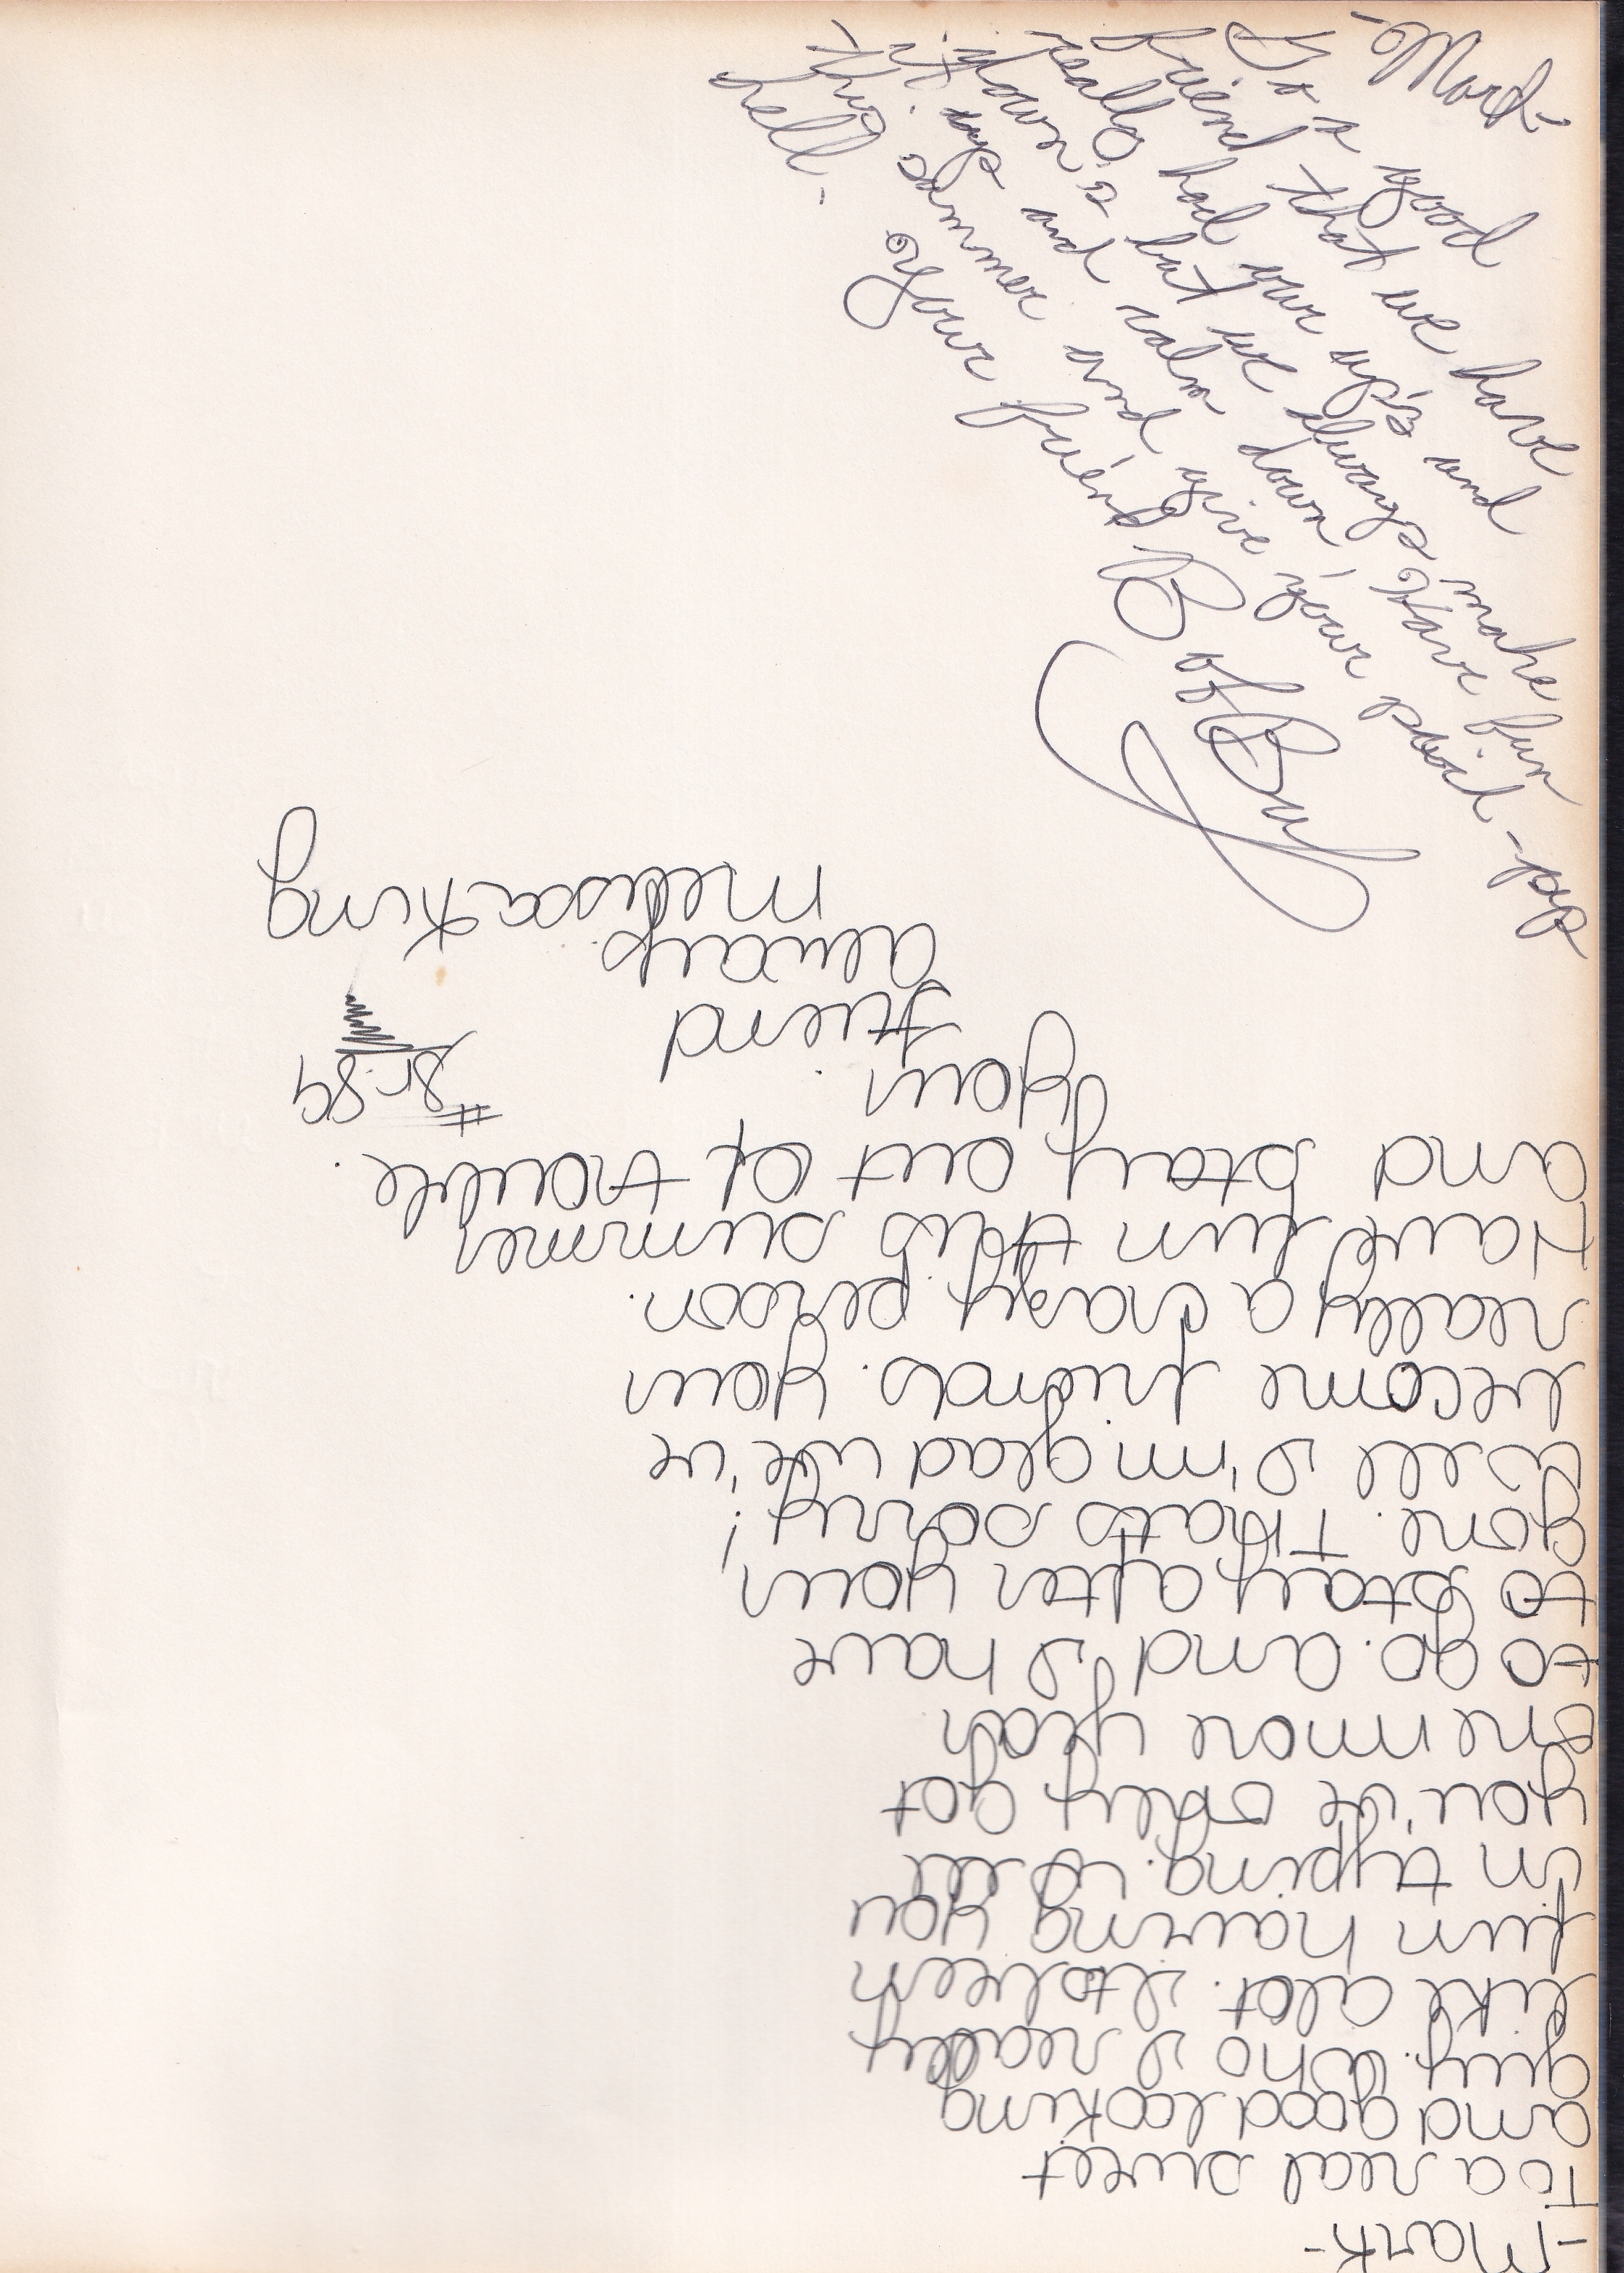 -Mark-
To a good
friend that we have
really had our up's and
down's but we always make
it up and calm down, Have fun
this summer and give your
hell.
Your friend
-Mark-
To a real sweet
and good looking
guy. Who I really
like alot. Its been
fun having you
in typing. Well
you've only got
one more year
to go. and I have
to stay after your
gone. Thats sorry!
Well I'm glad we've
become friends. Your
really a crazy person.
Have fun this summer
and stay out of trouble.
Your
friend
always
Melissa King
# Sr. 89